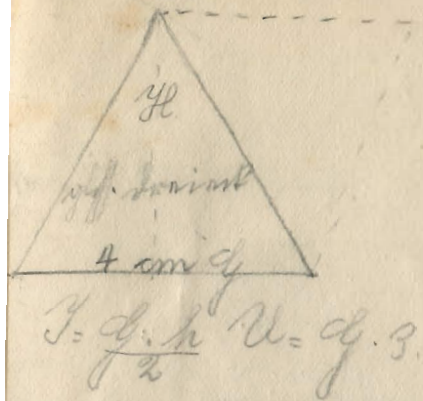 H
gls. Dreieck
4 cm G
J = G · h / 2 U = G · 3.